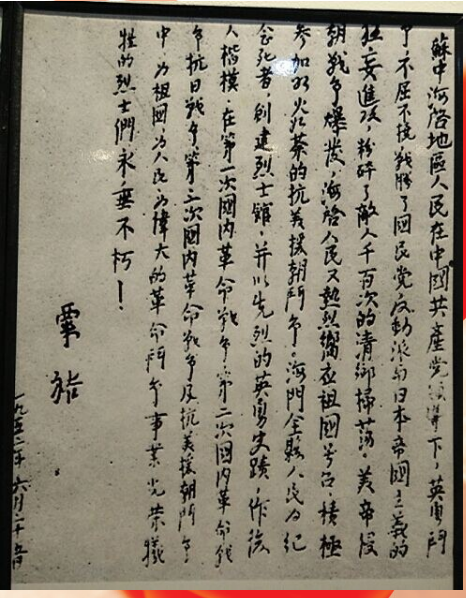 蘇中海啓地區人民在中國共產党領導下,英勇鬥
争,不屈不撓,战勝了國民党反動派与日本帝國主義的
狂妄進攻,粉碎了敵人千百次的清鄉掃蕩。美帝侵
朝战争爆發,海啓人民又熱烈響应祖國号召,積極
参加如火如荼的抗美援朝鬥争。海門全縣人民为紀
念死者,創建烈士館,并以先烈的英勇史蹟,作後
人楷模。在第一次國内革命战争、第二次國内革命战
争、抗日战争、第三次國内革命战争及抗美援朝鬥争
中,为祖國,为人民,为偉大的革命鬥争事業光荣犧
牲的烈士們永垂不朽!
粟裕
一九五二年六月二十